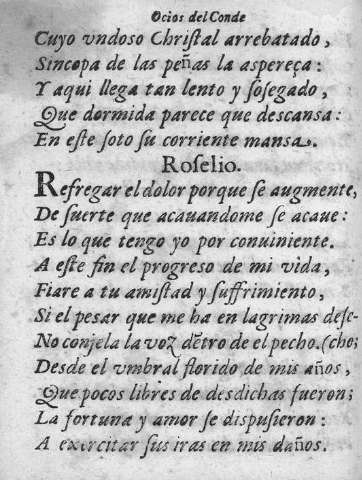 Ocios del Conde
Cuyo vndoso Christal arrebatado,
Sincopa de las peñas la aspereça:
Y aqui llega tan lento y sosegado,
Que dormida parece que descansa:
En este soto su corriente mansa.
Roselio.
Refregar el dolor porque se augmente,
De suerte que acauandome se acaue:
Es lo que tengo yo por conuiniente.
A este fin el progreso de mi vida,
Fiare a tu amistad y suffrimiento,
Si el pesar que me ha en lagrimas dese-
No conjela la voz dẽtro de el pecho. (cho;
Desde el vmbral florido de mis años,
Que pocos libres de desdichas fueron;
La fortuna y amor se dispusieron:
A exercitar sus iras en mis daños.